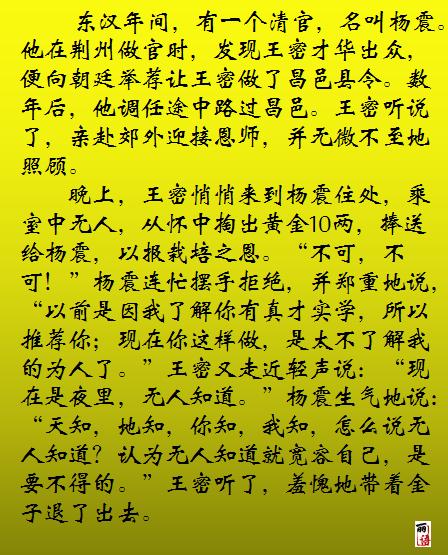 东汉年间，有一个清官，名叫杨震。
他在荆州做官时，发现王密才华出众，
便向朝廷举荐让王密做了昌邑县令。数
年后，他调任途中路过昌邑。王密听说
了，亲赴郊外迎接恩师，并无微不至地
照顾。
晚上，王密悄悄来到杨震住处，乘
室中无人，从怀中掏出黄金10两，捧送
给杨震，以报栽培之恩。“不可，不
可！”杨震连忙摆手拒绝，并郑重地说，
“以前是因我了解你有真才实学，所以
推荐你；现在你这样做，是太不了解我
的为人了。”王密又走近轻声说：“现
在是夜里，无人知道。”杨震生气地说：
“天知，地知，你知，我知，怎么说无
人知道？认为无人知道就宽容自己，是
要不得的。”王密听了，羞愧地带着金
子退了出去。
丽